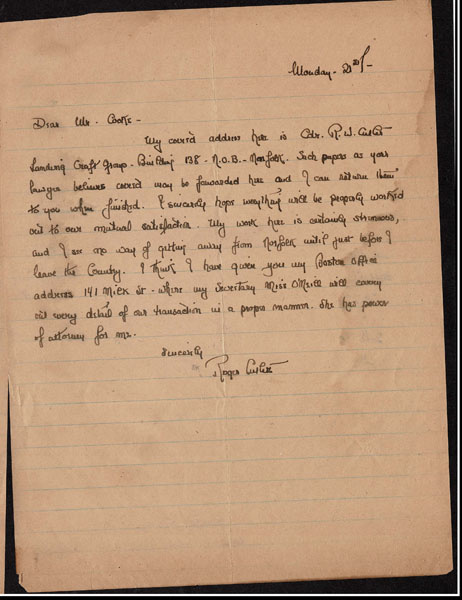 Monday - 21st -
Dear Mr. Cooke -
My correct address here is Cdr. R. W. Cutler
Landing Craft Group - Building 138 - N.O.B. - Norfolk. Such papers as your
lawyer believes correct may be forwarded here and I can return them
to you when finished. I sincerely hope everything will be properly worked
out to our mutual satisfaction. My work here is certainly strenuous,
and I see no way of getting away from Norfolk until just before I
leave the Country. I think I have given you my Boston office
address 141 Milk St. where my Secretary Miss O'Neill will carry
out every detail of our transaction in a proper manner. She has power
of attorney for me.
Sincerely
Roger